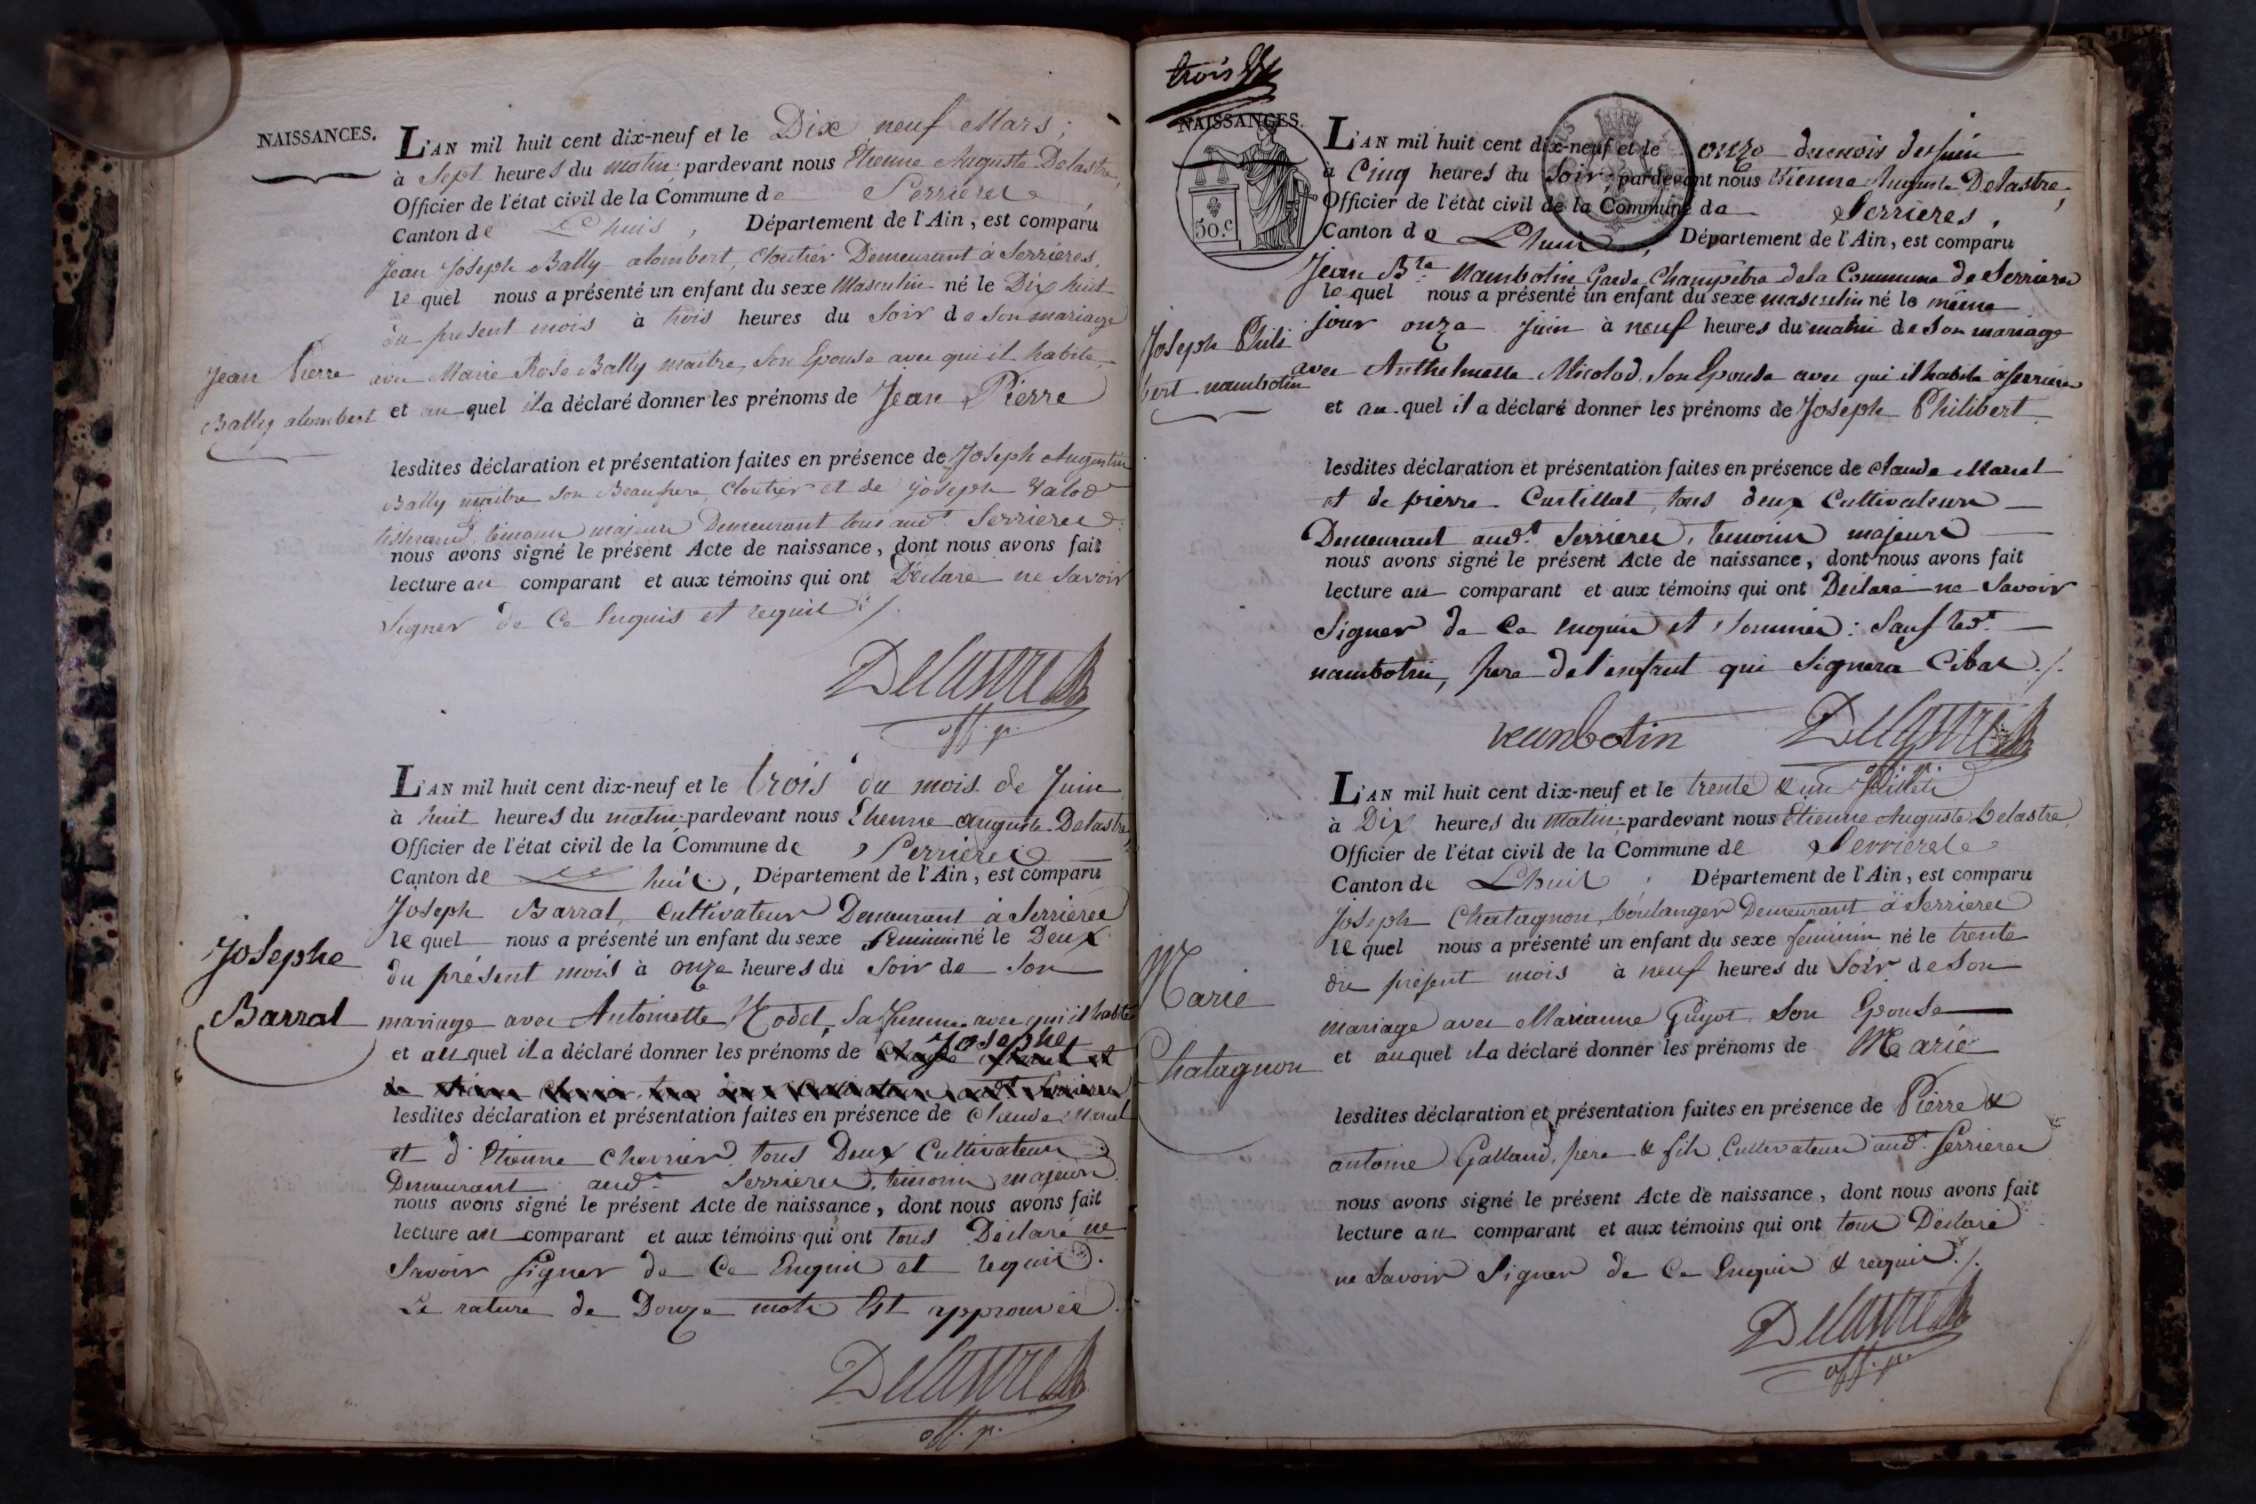 NAISSANCES.
L'AN mil huit cent dix-neuf et le Dix neuf Mars;
à Sept heures du matin pardevant nous Etienne Auguste Delastre,
Officier de l'état civil de la Commune de Serrieres
Canton de Lhuis, Département de l'Ain, est comparu
Jean Joseph Bally alombert, Cloutier Demeurant à Serrieres,
le quel nous a présenté un enfant du sexe Masculin né le Dix huit
du present mois à trois heures du Soir de Son mariage
avec Marie Rose Bally maitre, Son Epouse avec qui il habite,
et au quel il a déclaré donner les prénoms de Jean Pierre
Jean Pierre
Bally alombert
lesdites déclaration et présentation faites en présence de Joseph Augustin
Bally maitre Son Beaufrere, Cloutier et de joseph Valod
tisserand, temoins majeurs Demeurant tous aud.t Serrieres.
nous avons signé le présent Acte de naissance, dont nous avons fait
lecture au comparant et aux témoins qui ont Déclaré ne Savoir
Signer de Ce Enquis et requis ./.
Delastre
off. p.
L'AN mil huit cent dix-neuf et le trois du mois de Juin
à huit heures du matin pardevant nous Etienne auguste Delastre,
Officier de l'état civil de la Commune de Serrieres
Canton de Lhuis, Département de l'Ain, est comparu
Joseph Barral, Cultivateur Demeurant à Serrieres
le quel nous a présenté un enfant du sexe Feminin né le Deux
du présent mois à onze heures du Soir de Son
mariage avec Antoinette Modet, Sa femme avec qui il habite
Josephe
et au quel il a déclaré donner les prénoms de
Josephe
Barral
lesdites déclaration et présentation faites en présence de Claude Marcel
et d'Etienne Chevrier, tous Deux Cultivateurs
Demeurant aud.t Serrieres, temoins majeurs.
nous avons signé le présent Acte de naissance, dont nous avons fait
lecture au comparant et aux témoins qui ont tous Déclaré ne
Savoir Signer de Ce Enquis et requis.
Le rature de Douze mots Est approuvée.
Delastre
off. p.
trois
NAISSANCES.
50.c
L'AN mil huit cent dix-neuf et le onze du mois de Juin
à Cinq heures du Soir, pardevant nous Etienne Auguste Delastre,
Officier de l'état civil de la Commune de Serrieres,
Canton de Lhuis, Département de l'Ain, est comparu
Jean B.te Nambotin Garde Champêtre de la Commune de Serrieres
le quel nous a présenté un enfant du sexe masculin né le même
jour onze Juin à neuf heures du matin de Son mariage
avec Anthelmette Micolod, Son Epouse avec qui il habite à Serrieres
et au quel il a déclaré donner les prénoms de Joseph Philibert
Joseph Phili
bert nambotin
lesdites déclaration et présentation faites en présence de Claude Marcel
et de pierre Curtillat, tous deux Cultivateurs
Demeurant aud.t Serrieres, temoins majeurs
nous avons signé le présent Acte de naissance, dont nous avons fait
lecture au comparant et aux témoins qui ont Déclaré ne Savoir
Signer de Ce Enquis et Sommés: Sauf led.t
nambotin, pere de l'enfant qui Signera Cibas ./.
nambotin Delastre
L'AN mil huit cent dix-neuf et le trente & un Juillet
à Dix heures du Matin pardevant nous Etienne Auguste Delastre,
Officier de l'état civil de la Commune de Serrieres
Canton de Lhuis, Département de l'Ain, est comparu
Joseph Chatagnon, boulanger Demeurant à Serrieres
le quel nous a présenté un enfant du sexe feminin né le trente
du présent mois à neuf heures du Soir de Son
mariage avec Marianne Guyot Son Epouse
et au quel il a déclaré donner les prénoms de Marie
Marie
Chatagnon
lesdites déclaration et présentation faites en présence de Pierre &
antoine Galland, pere & fils Cultivateurs aud.t Serrieres
nous avons signé le présent Acte de naissance, dont nous avons fait
lecture au comparant et aux témoins qui ont tous Déclaré
ne Savoir Signer de Ce Enquis & requis ./.
Delastre
off. p.